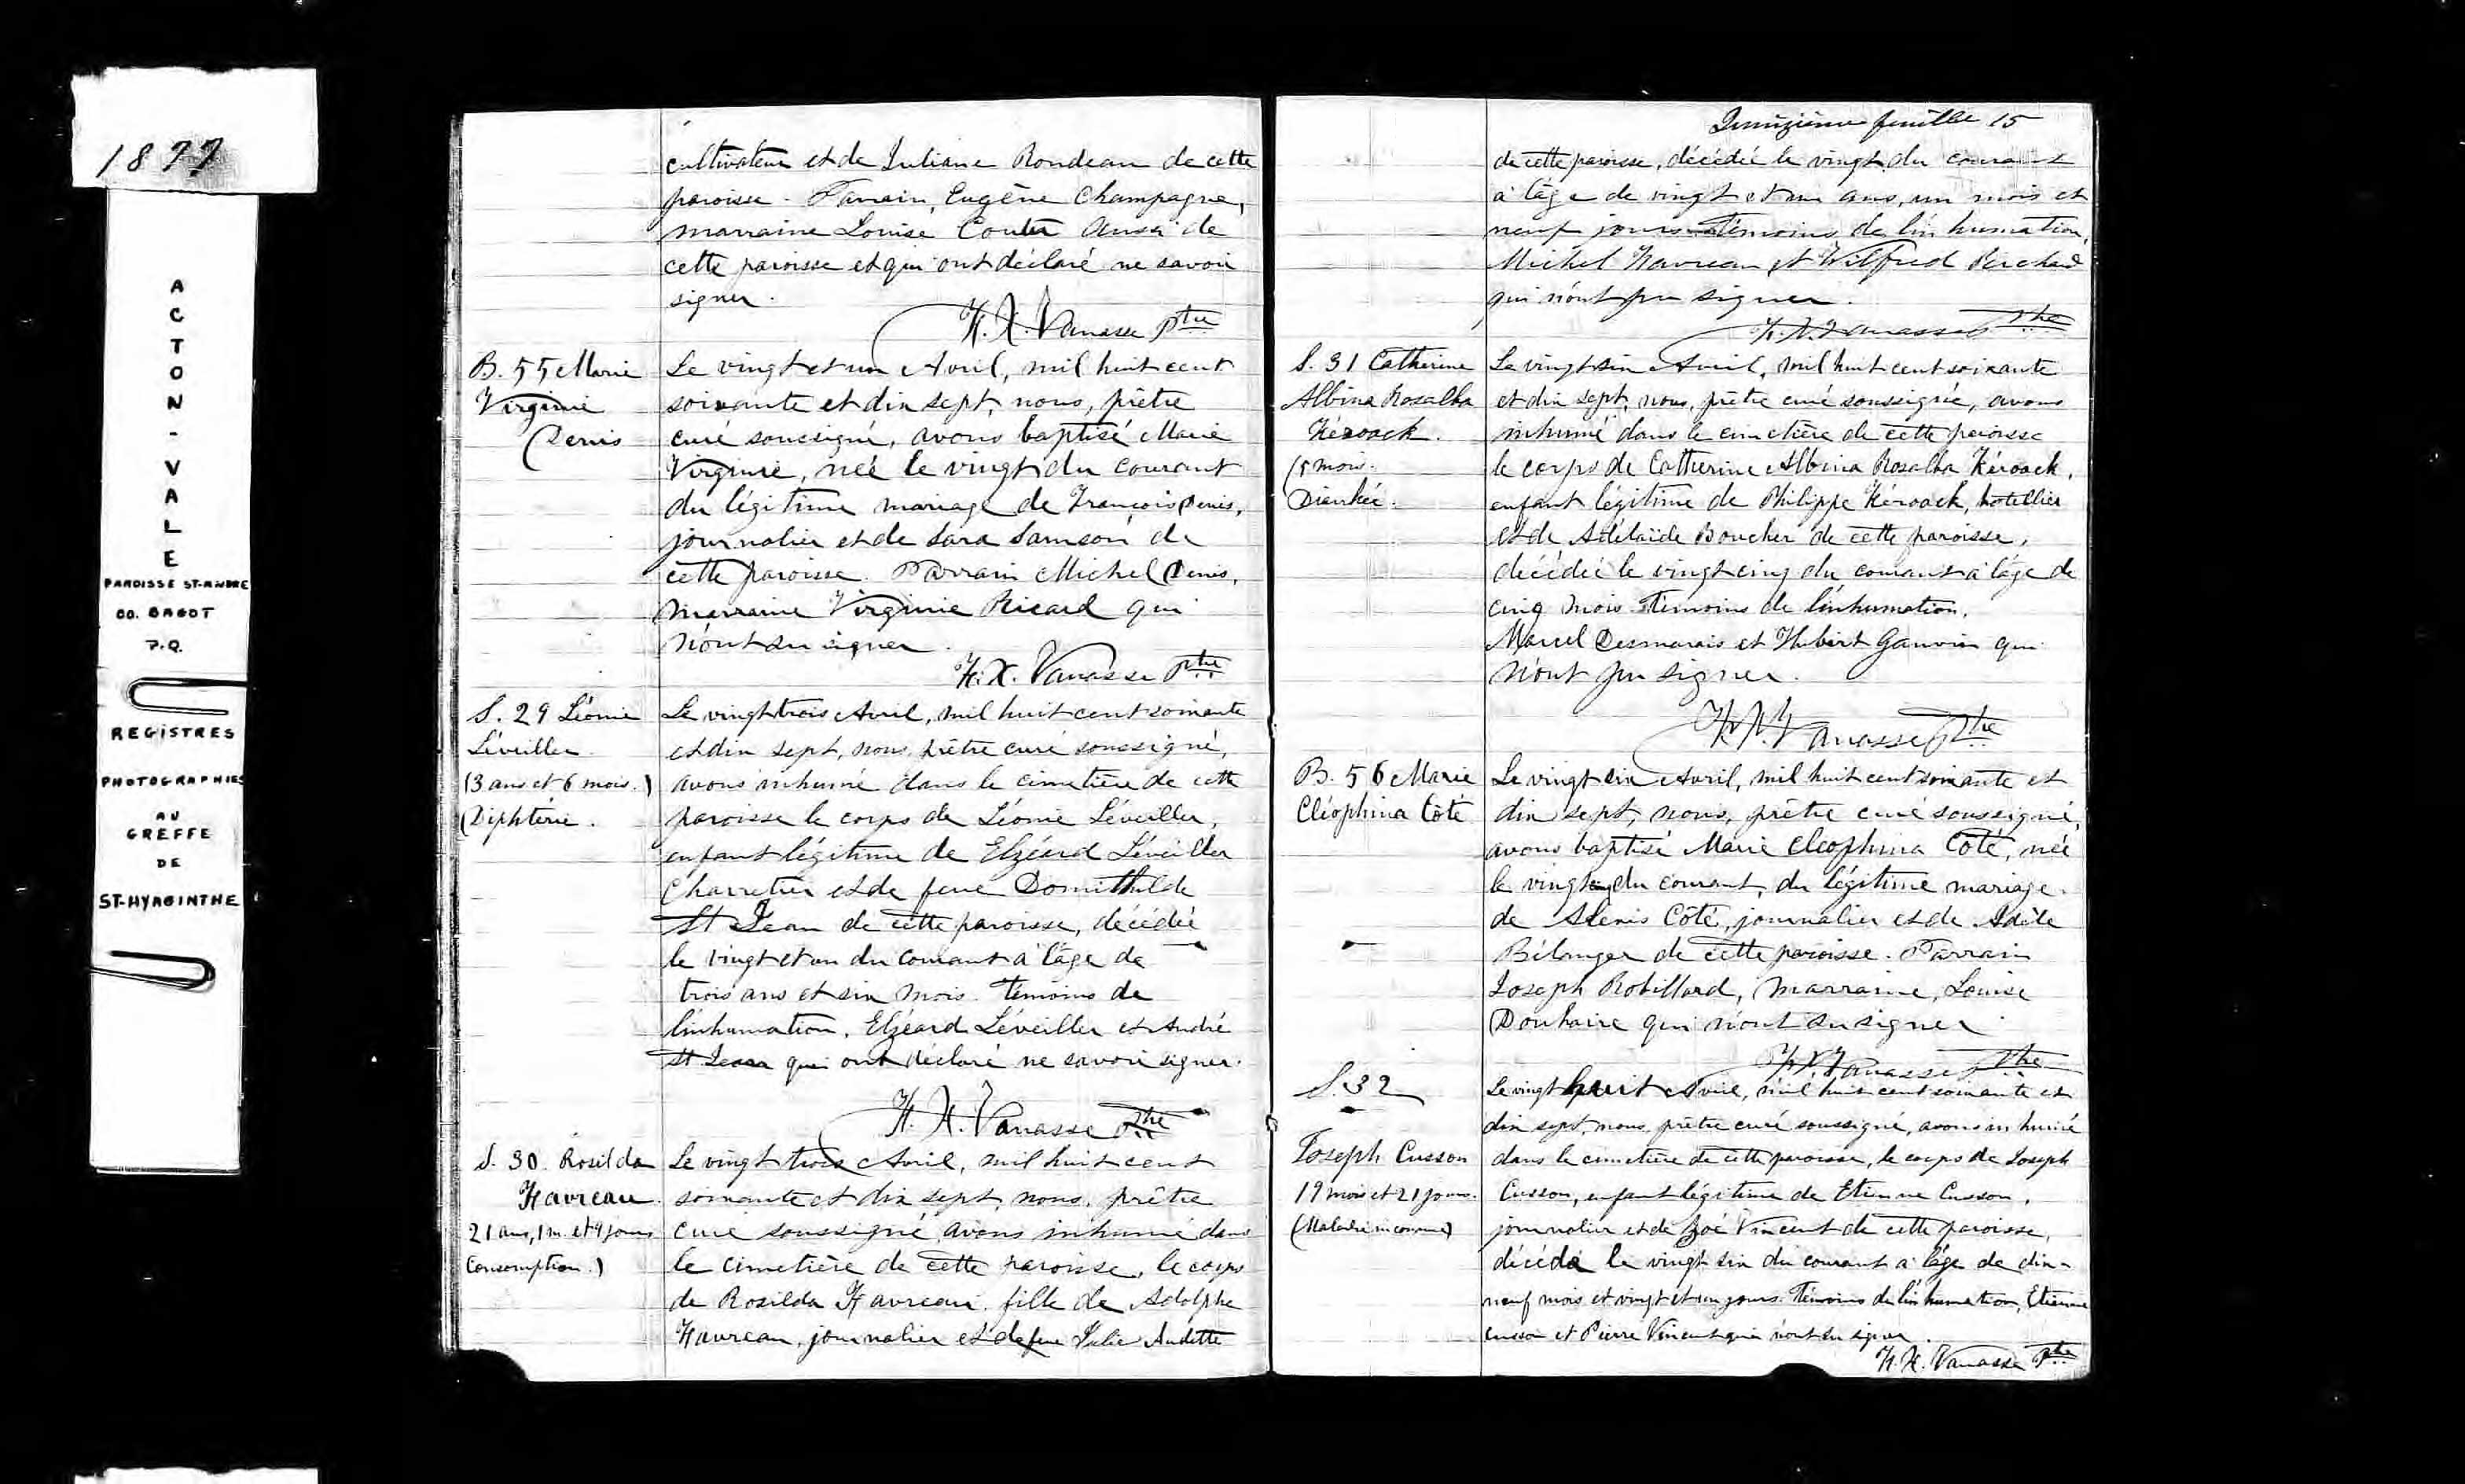 1877
ACTON-VALE
PAROISSE ST-ANDRE
CO. BAGOT
P.Q.
REGISTRES
PHOTOGRAPHIES
AU
GREFFE
DE
ST-HYACINTHE
cultivateur et de Juliane Rondeau de cette
paroisse. Parrain, Eugène Champagne,
marraine Louise aussi de
cette paroisse et qui ont déclaré ne savoir
signer.
F. X. Vanasse Ptre
B. 55 Marie
Virginie
Denis
Le vingt et un Avril, mil huit cent
soixante et dix sept, nous, prêtre
curé soussigné, avons baptisé Marie
Virginie, née le vingt du courant
du légitime mariage de François Denis,
journalier et de Sara Samson de
cette paroisse. Parrain Michel Denis,
marraine Virginie Ricard qui
n'ont su signer.
F. X. Vanasse Ptre
S. 29 Léonie
Léveiller
(3 ans et 6 mois.)
(Diphtérie.
Le vingt trois Avril, mil huit cent soixante
et dix sept, nous, prêtre curé soussigné,
avons inhumé dans le cimetière de cette
paroisse le corps de Léonie Léveiller,
enfant légitime de Elzéard Léveiller
Charretier et de feue Domithilde
St Jean de cette paroisse, décédée
le vingt et un du courant à l'âge de
trois ans et six mois. Témoins de
l'inhumation, Elzéard Léveiller et André
St Jean qui ont déclaré ne savoir signer.
F. X. Vanasse Ptre
S. 30. Rosilda
Favreau.
21 ans, 1 m. et 9 jours
Consomption.)
Le vingt trois Avril, mil huit cent
soixante et dix sept, nous, prêtre
curé soussigné avons inhumé dans
le cimetière de cette paroisse, le corps
de Rosilda Favreau, fille de Adolphe
Favreau, journalier et de feue Julie Audette
Quinzième feuille 15
de cette paroisse, décédée le vingt du courant
à l'âge de vingt et un ans, un mois et
neuf jours. Témoins de l'inhumation,
Michel Favreau et Wilfred
qui n'ont pu signer.
F. X. Vanasse Ptre
S. 31 Catherine
Albina Rosalba
Kéroack.
(5 mois.
Diarrhée.
Le vingt six Avril, mil huit cent soixante
et dix sept, nous, prêtre curé soussigné, avons
inhumé dans le cimetière de cette paroisse
le corps de Catherine Albina Rosalba Kéroack,
enfant légitime de Philippe Kéroack, hotellier
et de Adélaïde Boucher de cette paroisse,
décédée le vingt cinq du courant à l'âge de
cinq mois. Témoins de l'inhumation,
Marcel Desmarais et Hubert Gauvin qui
n'ont pu signer.
F. X. Vanasse Ptre
B. 56 Marie
Cléophina Côté
Le vingt six Avril, mil huit cent soixante et
dix sept, nous, prêtre curé soussigné,
avons baptisé Marie Cléophina Côté, née
le vingt cinq du courant, du légitime mariage
de Côté, journalier et de Adèle
Bélanger de cette paroisse. Parrain
Joseph Robillard, marraine, Louise
Douhaire qui n'ont su signer.
F. X. Vanasse Ptre
S. 32
Joseph Cusson
19 mois et 21 jours.
(Maladie inconnue)
Le vingt huit Avril, mil huit cent soixante et
dix sept, nous, prêtre curé soussigné, avons inhumé
dans le cimetière de cette paroisse, le corps de Joseph
Cusson, enfant légitime de Etienne Cusson,
journalier et de Zoé Vincent de cette paroisse,
décédé le vingt six du courant à l'âge de dix-
neuf mois et vingt et un jours. Témoins de l'inhumation, Etienne
Cusson et Pierre Vincent qui n'ont su signer.
F. X. Vanasse Ptre